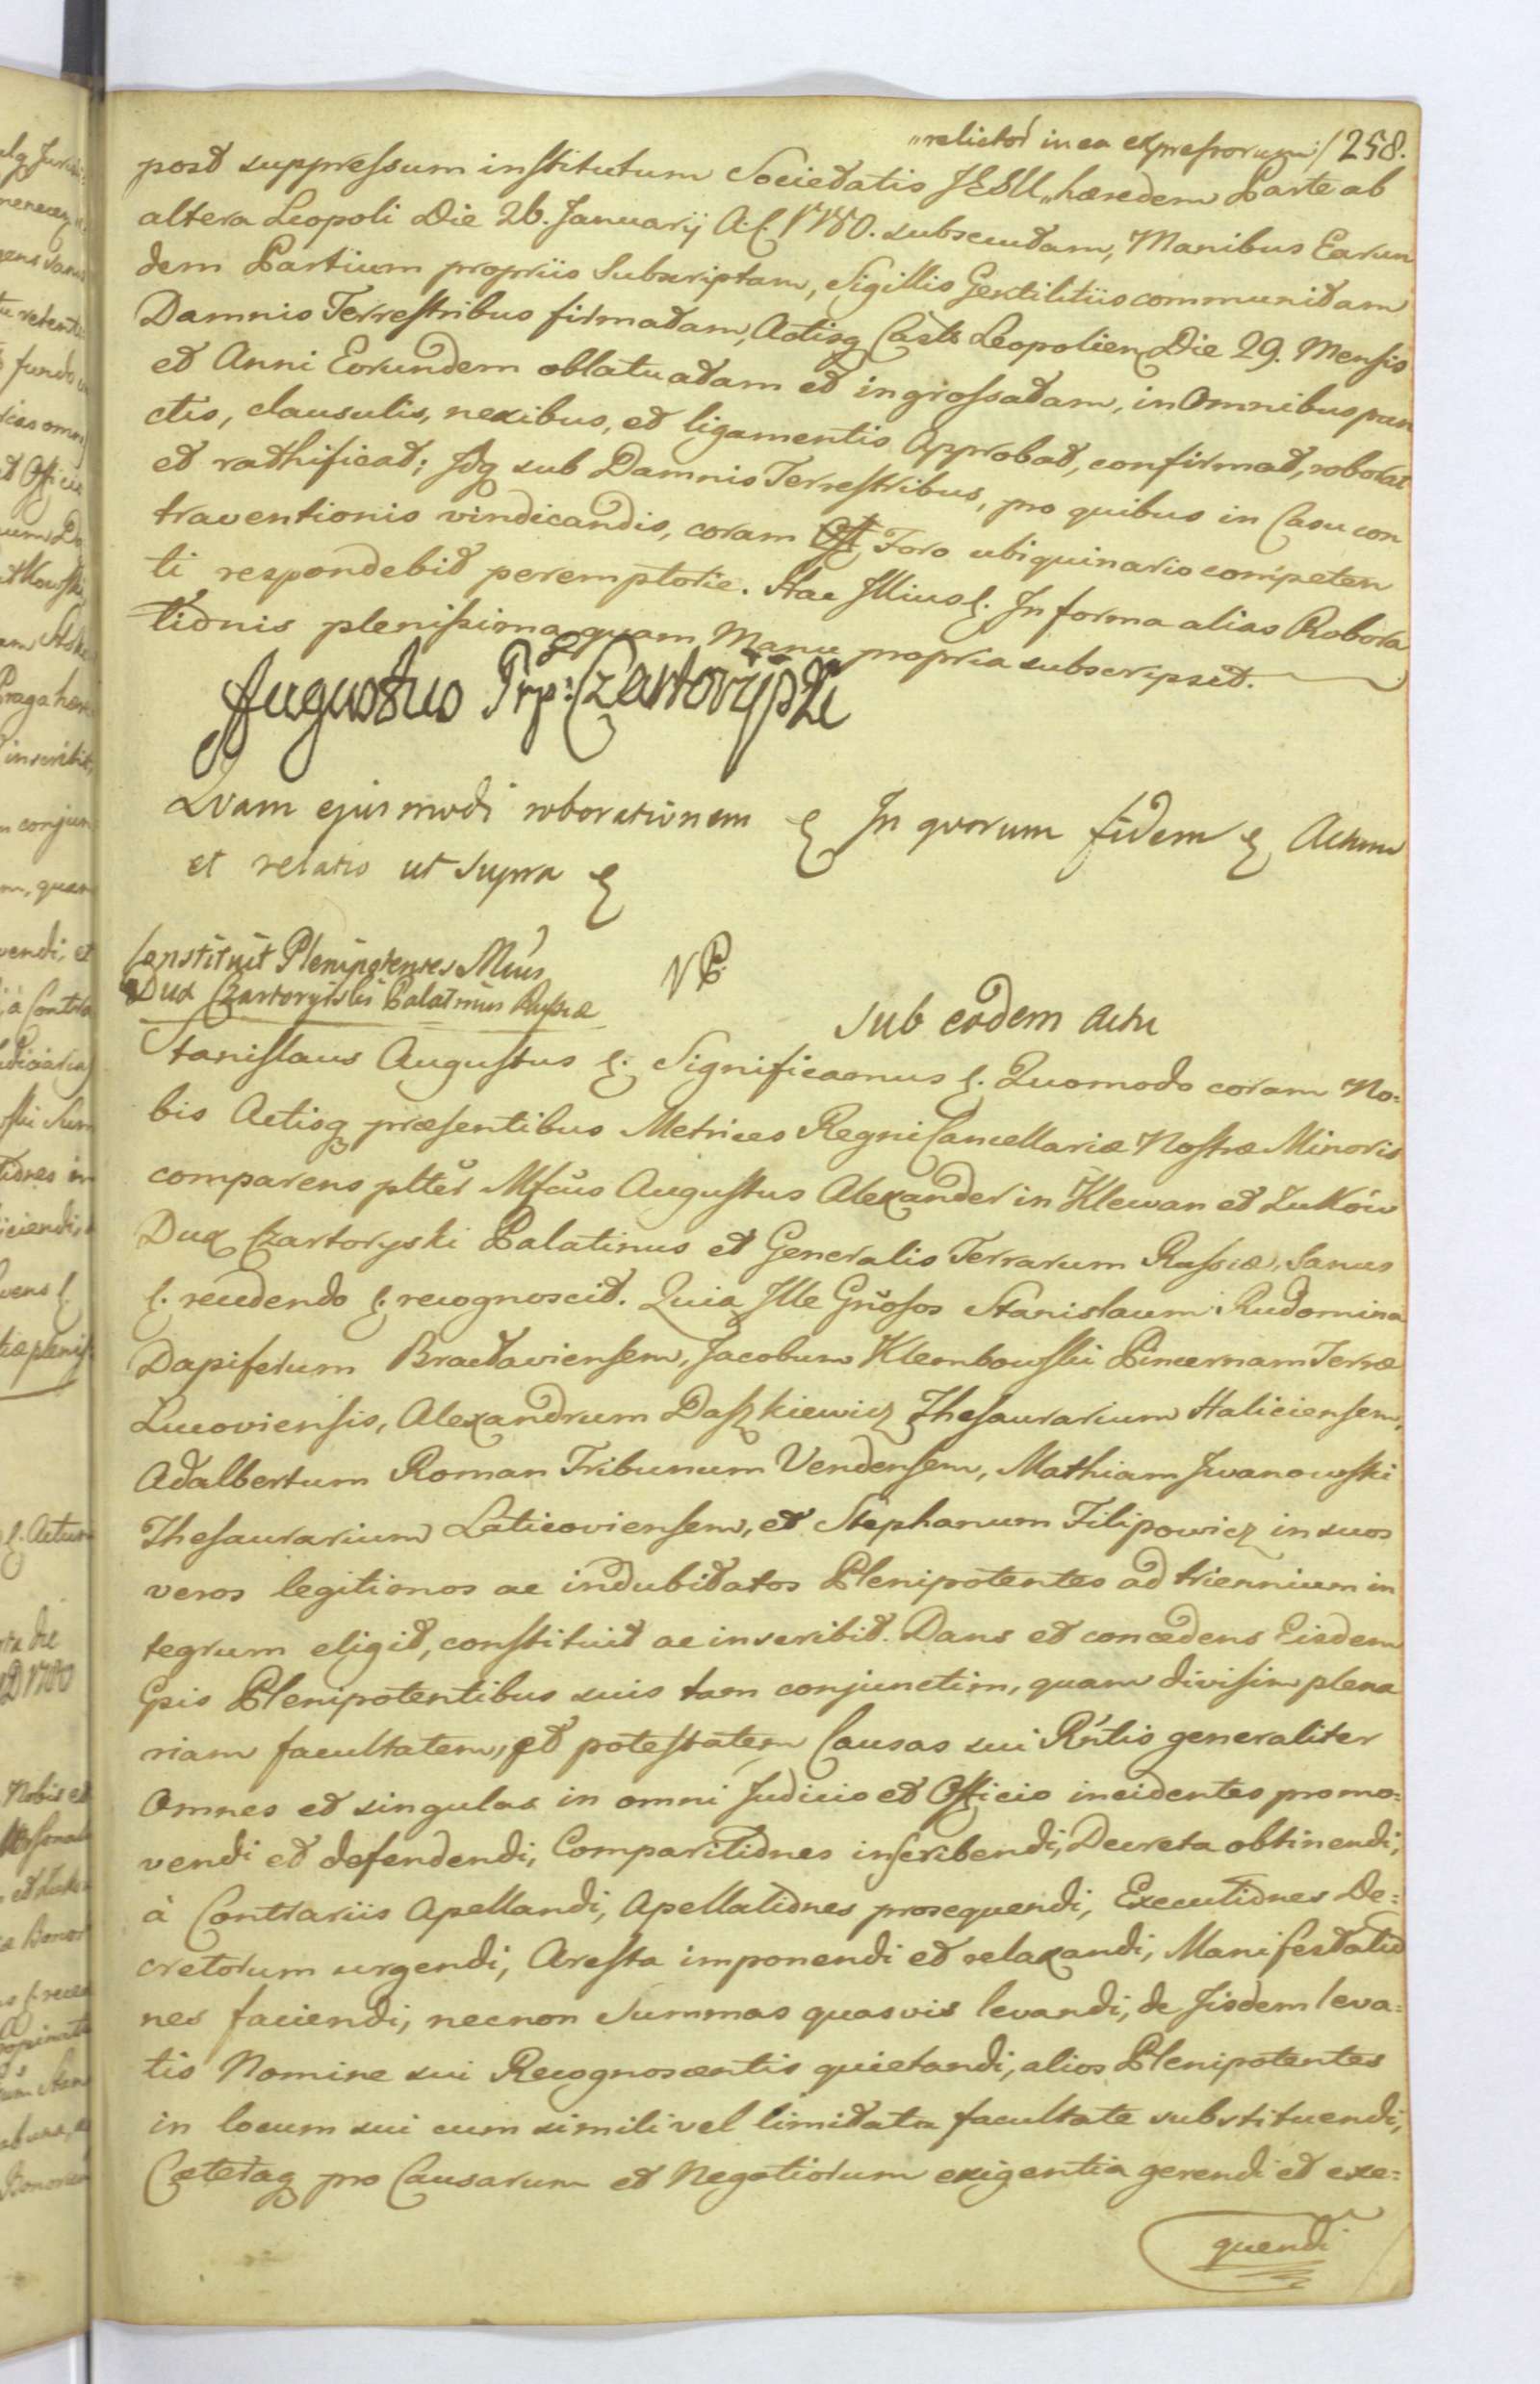 "relictor in ea expressorum / 258.
post suppressum institutum Societatis JESU, hæredem Parte ab
altera Leopoli Die 26. Januarij A: C: 1780. subsecutam, Manibus Earun
dem Partium propriis Subscriptam, Sigillis Gentilitiis communitam
Damnis Terrestribus firmatam, Actisq Castr Leopolien Die 29. Mensis
et Anni Eorundem oblatuatam et ingrossatam, in Omnibus pun
ctis, clausulis, nexibus, et ligamentis Approbat, confirmat, roborat
et rathificat; Idq sub Damnis Terrestribus, pro quibus in Casu con
traventionis vindicandis, coram Foro ubiquinario competen
ti respondebit peremptorie. Hac Illius &. In forma alias Robora
tionis plenissima quam Manu propria subscripsit.
Augustus Xrp: Czartoryski
Quam ejusmodi roborationem & In quorum fidem & Actum
et relatio ut supra &
Constituit Plenipotentes Mcus
Dux Czartoryiski Palatinus Russiæ
NP.
Sub eodem actu
Stanislaus Augustus &. Significamus &. Quomodo coram No=
bis Actisq præsentibus Metrices Regni Cancellariæ Nostræ Minoris
comparens plter Mfcus Augustus Alexander in Klewan et Zukow
Dux Czartoryski Palatinus et Generalis Terrarum Russiæ, Sanus
&. recedendo &. recognoscit. Quia Ille Gnosos Stanislaum Rudomina
Dapiferum Bractaviensem, Jacobum Klembowski Pincernam Terræ
Lucoviensis, Alexandrum Daszkiewicz Thesaurarium Haliciensem,
Adalbertum Roman Tribunum Vendensem, Mathiam Jwanowski
Thesaurarium Laticoviensem, et Stephanum Filipowicz in suos
veros legitimos ac indubitatos Plenipotentes ad triennium in
tegrum eligit, constituit ac inscribit. Dans et concedens Eisdem
Gsis Plenipotentibus suis tam conjunctim, quam divisim plena
riam facultatem, et potestatem Causas sui Rntis generaliter
Omnes et singulas in omni Judicio et Officio incidentes promo=
vendi et defendendi, Comparitiones inscribendi, Decreta obtinendi,
à Contrariis Apellandi, Apellationes prosequendi, Executiones De=
cretorum urgendi, Aresta imponendi et relaxandi, Manifestatio
nes faciendi, necnon Summas quasvis levandi, de Iisdem leva=
tis Nomine sui Recognoscentis quietandi, alios Plenipotentes
in locum sui cum simili vel limitata facultate substituendi,
Cæteraq pro Causarum et Negotiorum exigentia gerendi et exe=
quendi